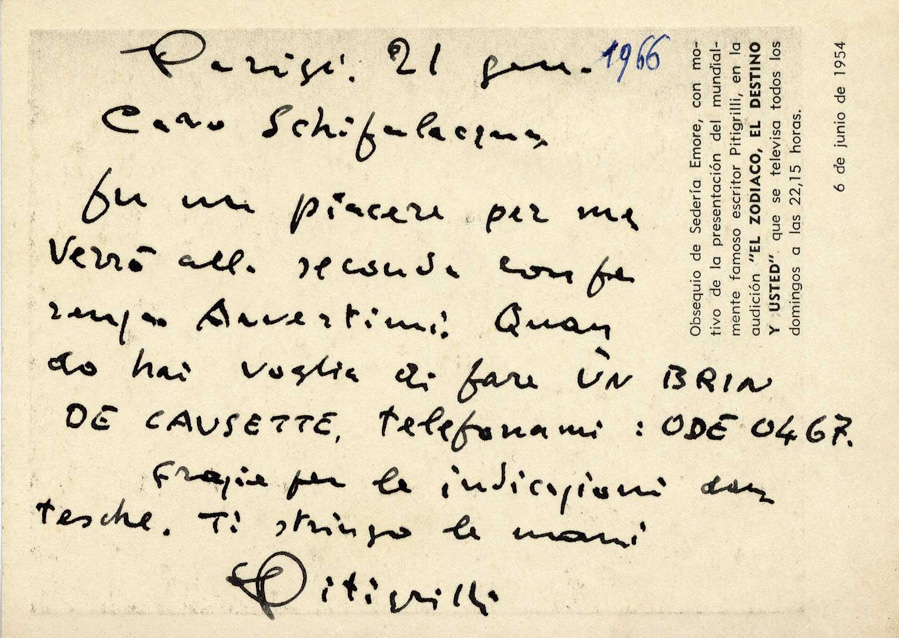 Parigi. 21 gen. 1966
Caro Schifalacqua,
fu un piacere per me
Verrò alla seconda confe
renza. Avvertimi. Quan
do hai voglia di fare UN BRIN
DE CAUSETTE, telefonami : ODE 0467.
Grazie per le indicazioni dan
tesche. Ti stringo le mani
Pitigrilli
Obsequio de Sedería Emore, con mo-
tivo de la presentación del mundial-
mente famoso escritor Pitigrilli, en la
audición "EL ZODIACO, EL DESTINO
Y USTED" que se televisa todos los
domingos a las 22,15 horas.
6 de junio de 1954